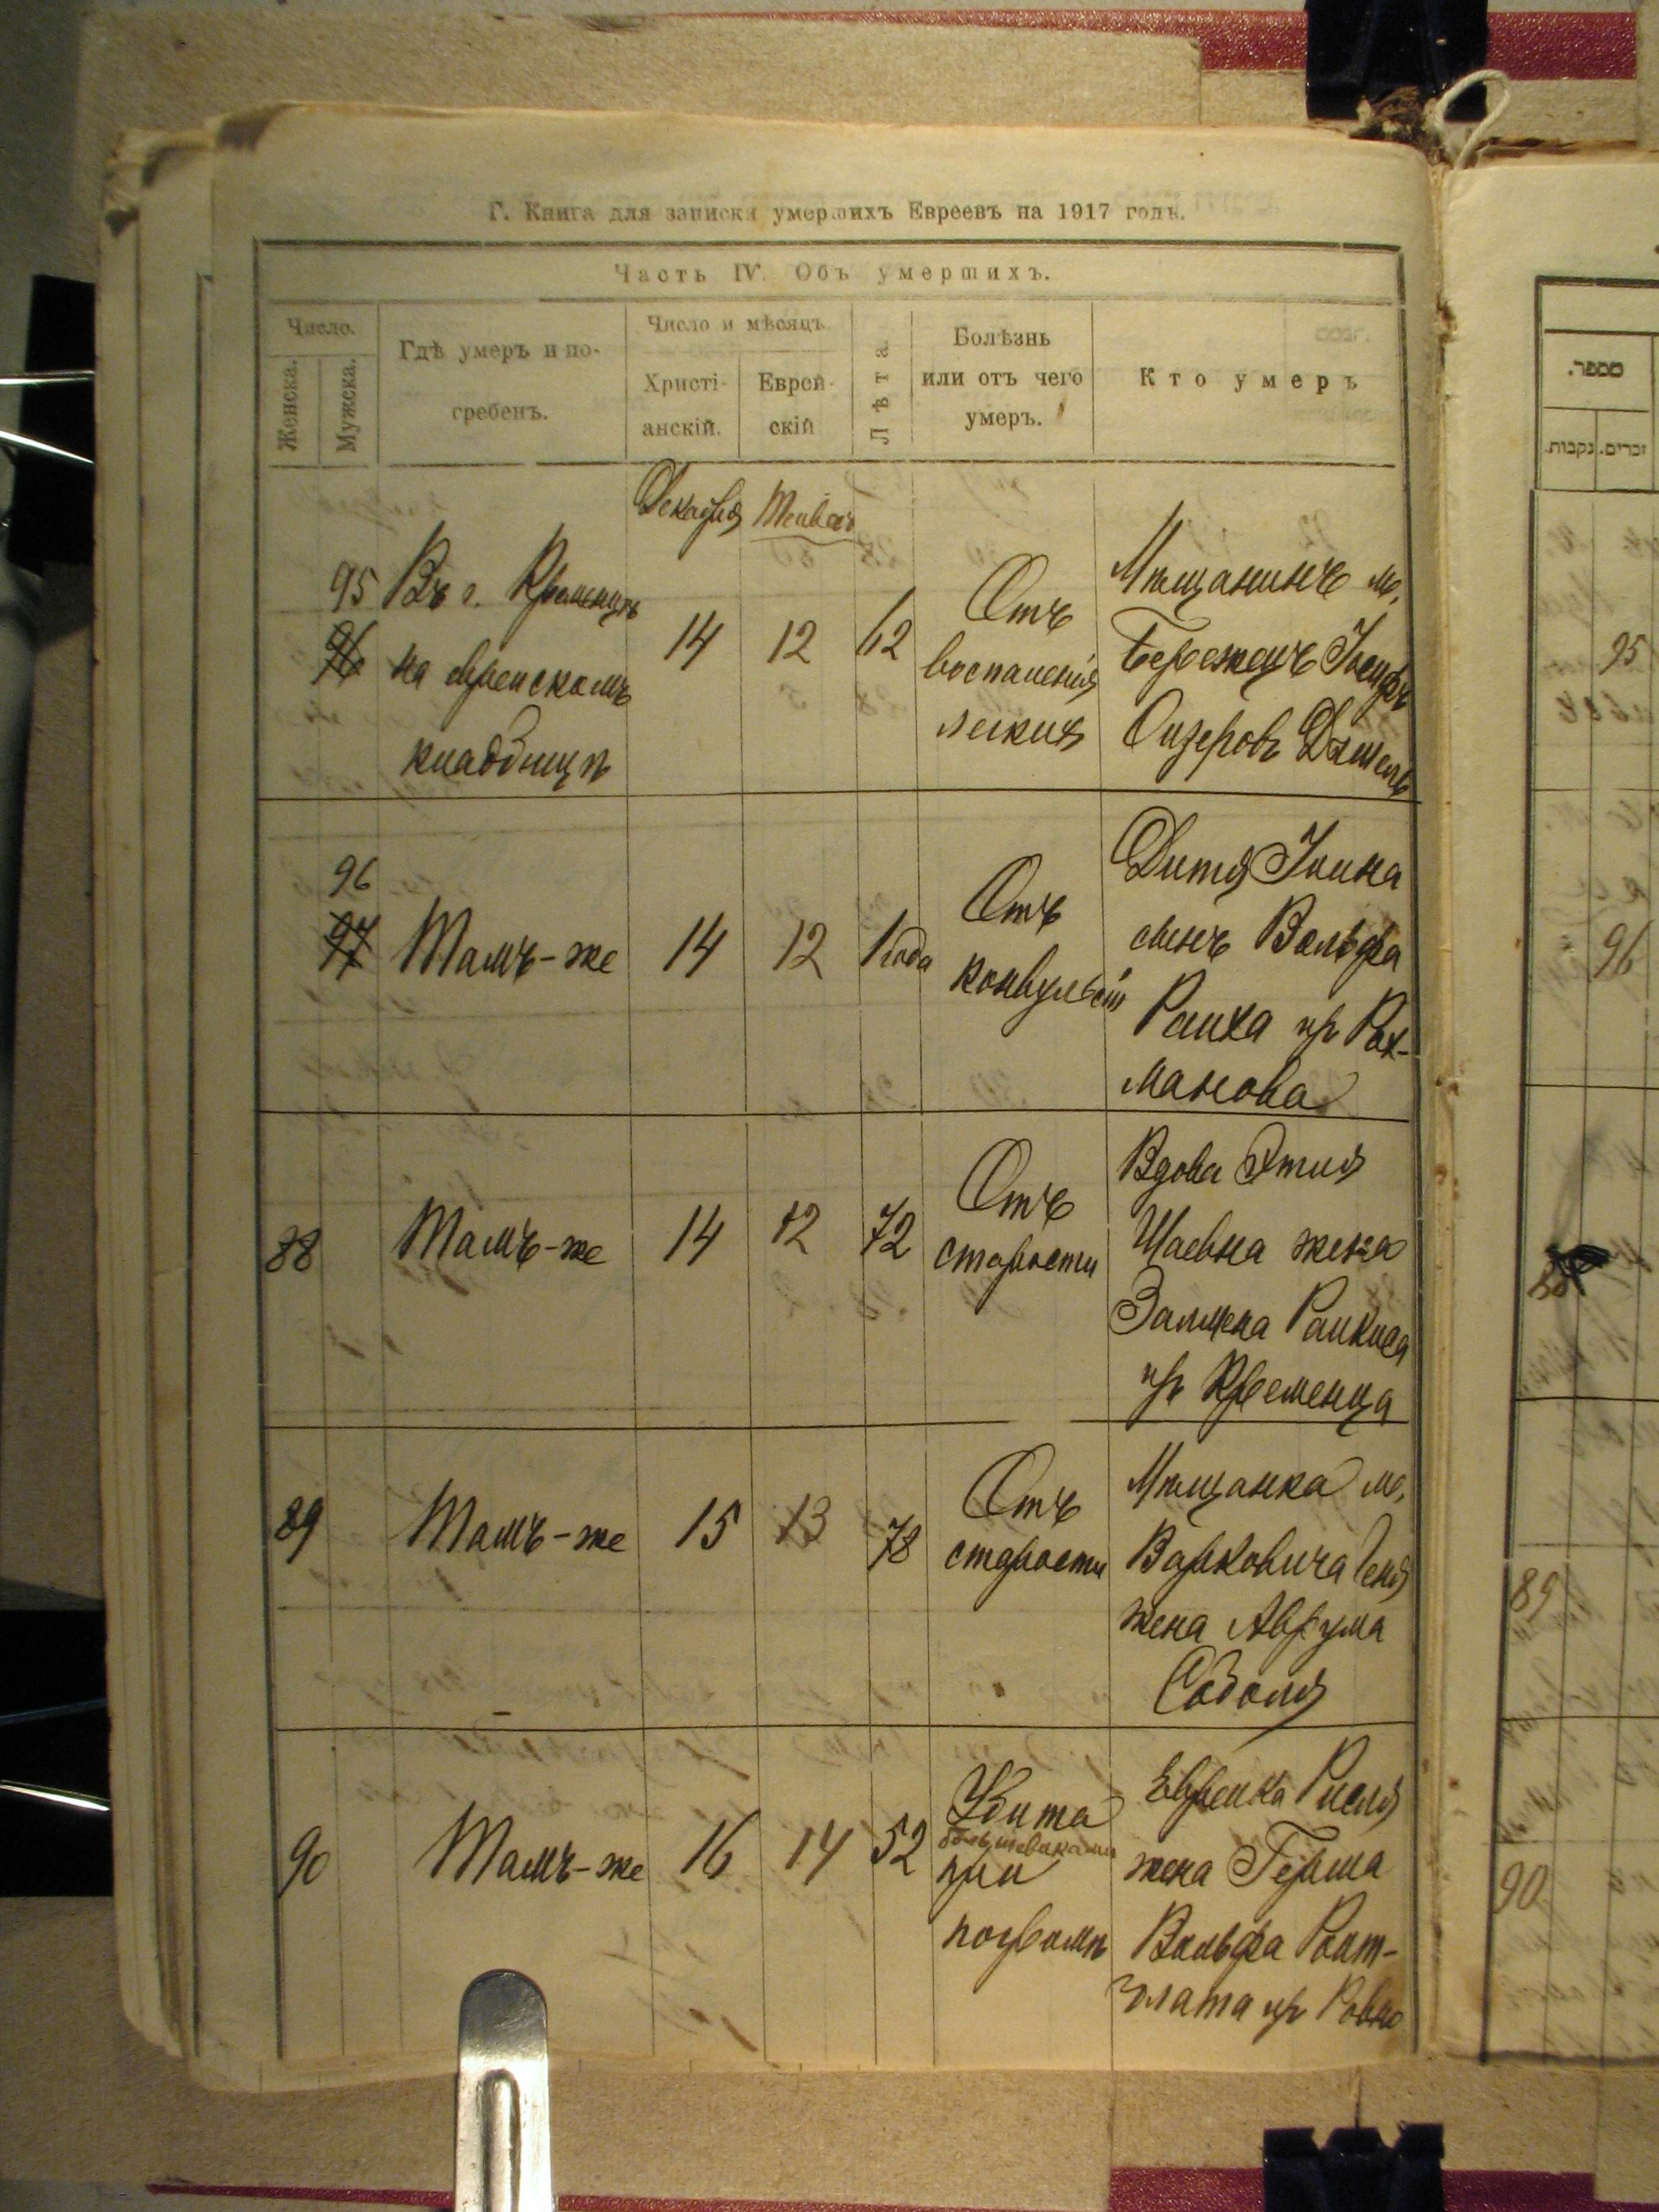 Г. Книга для записки умершихъ Евреевъ на 1917 годъ.
Часть IV. Объ умершихъ.
Число.
Женска.
Мужска.
Гдѣ умеръ и по-
гребенъ.
Число и мѣсяцъ
Христі-
анскій.
Еврей-
скій
Лѣта.
Болѣзнь
или отъ чего
умеръ.
Кто умеръ
Декабря
95 Въ г. Кременцѣ
96 на еврейскомъ
кладбищѣ
14 12 62
Отъ
воспаленія
легкихъ
Мѣщанинъ м.
Бережецъ Іосифъ
96
97 Тамъ-же 14 12 1 года
Отъ
конвульсій
Дитя
сынъ Вольфа
Райха изъ Рах-
манова
88 Тамъ-же 14 12 72
Отъ
старости
Вдова Этля
Шаевна жена
Залмана
изъ Кременца
89 Тамъ-же 15 13 78
Отъ
старости
Мѣщанка м.
Варковича
жена Аврума
Соболя
90 Тамъ-же 16 14 52
Убита
большевиками
при
погромѣ
Еврейка
жена Герша
Вольфа Ройт-
блата изъ Ровно
מספר.
נקבות. זכרים.
95
96
89
90